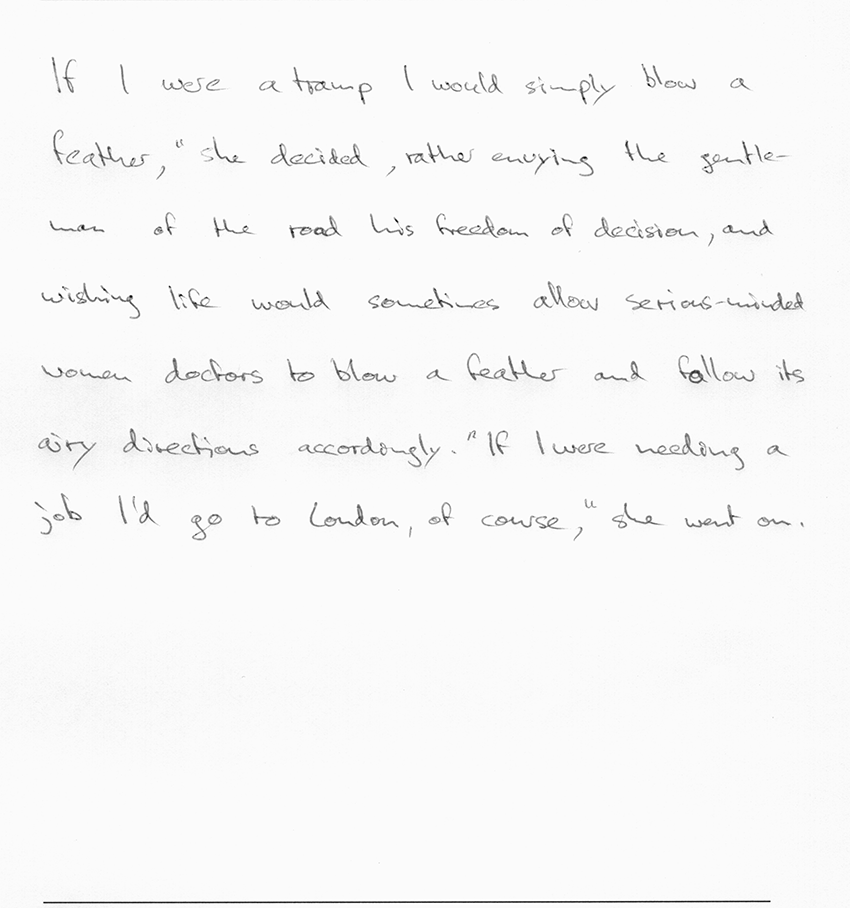 If I were a tramp I would simply blow a
feather," she decided, rather envying the gentle-
man of the road his freedom of decision, and
wishing life would sometimes allow serious-minded
women doctors to blow a feather and follow its
airy directions accordingly. "If I were needing a
job I'd go to London, of course," she went on.